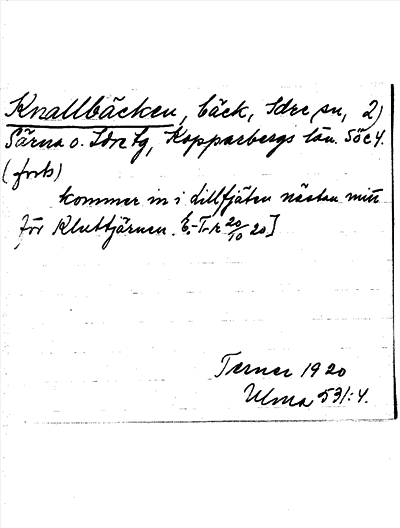 Knallbäcken, bäck, Idre sn, 2)
Särna o. Idre tg, Kopparbergs län. Söc4.
(forts)
kommer in i Lillfjäten nästan mitt
för Kluttjärnen. E.-T-r 20/10 20]
Terner 1920
Ulma 531:4.